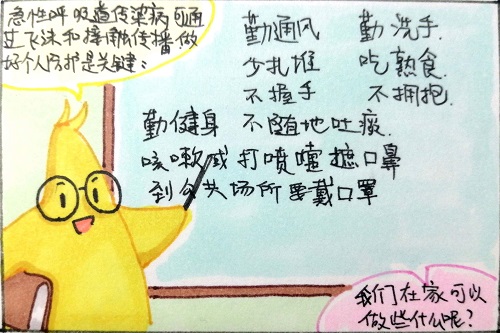 急性呼吸道传染病可通
过飞沫和接触传播做
好个人防护是关键:
勤通风 勤洗手.
少扎堆 吃熟食.
不握手 不拥抱.
勤健身 不随地吐痰.
咳嗽或打喷嚏摭口鼻
到公共场所要戴口罩
我们在家可以
做些什么呢?